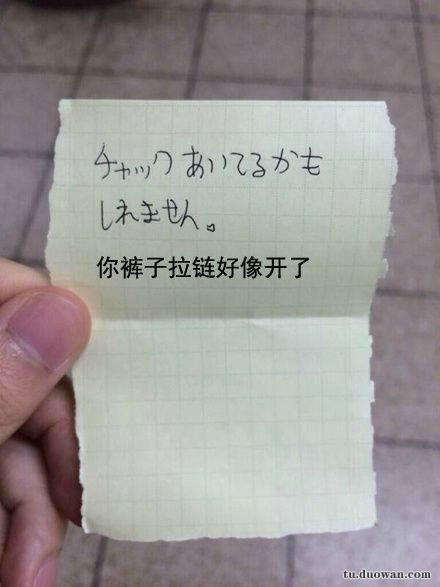 チャックあいてるかも
しれません。
你裤子拉链好像开了
tu.duowan.com